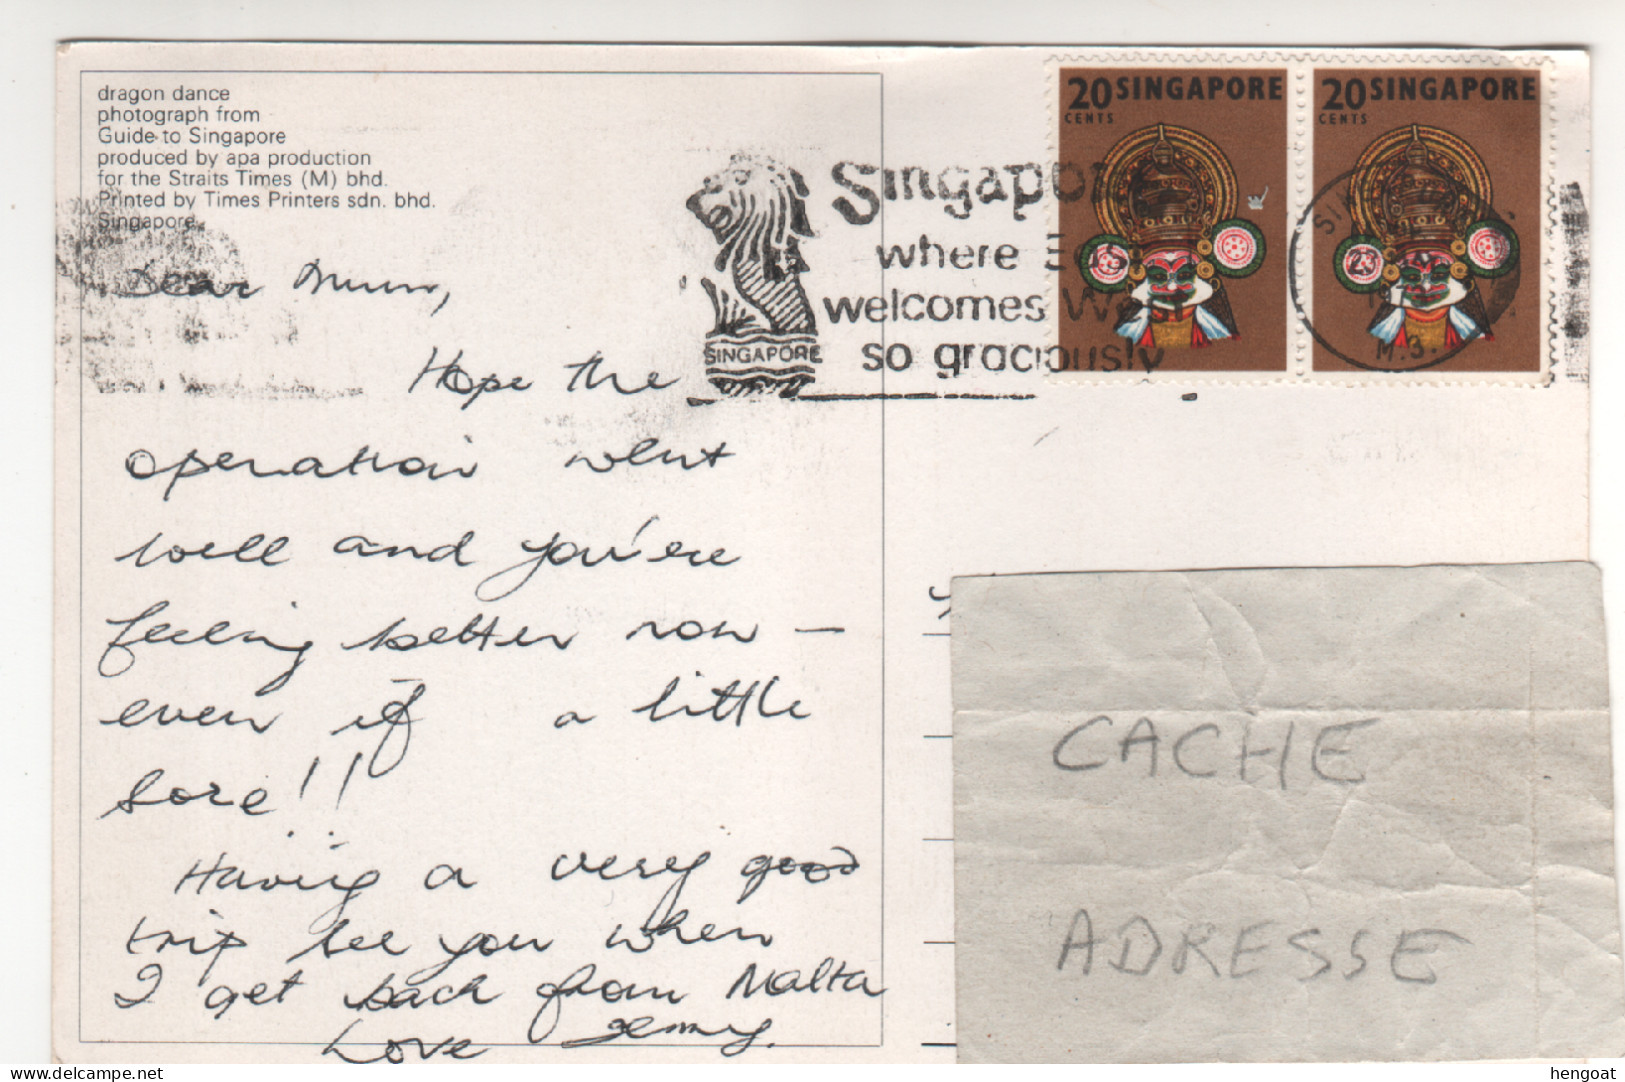 dragon dance
photograph from
Guide to Singapore
produced by apa production
for the Straits Times (M) bhd.
Printed by Times Printers sdn. bhd.
Singapore
Dear Mum,
Hope the
operation went
well and you're
feeling better now –
even if a little
sore!!
Having a very good
trip see you when
I get back from Malta
Love Jenny.
SINGAPORE
Singapore
where East
welcomes West
so graciously
20 SINGAPORE
CENTS
20 SINGAPORE
CENTS
23
M.3.
CACHE
ADRESSE
delcampe.net
hengoat